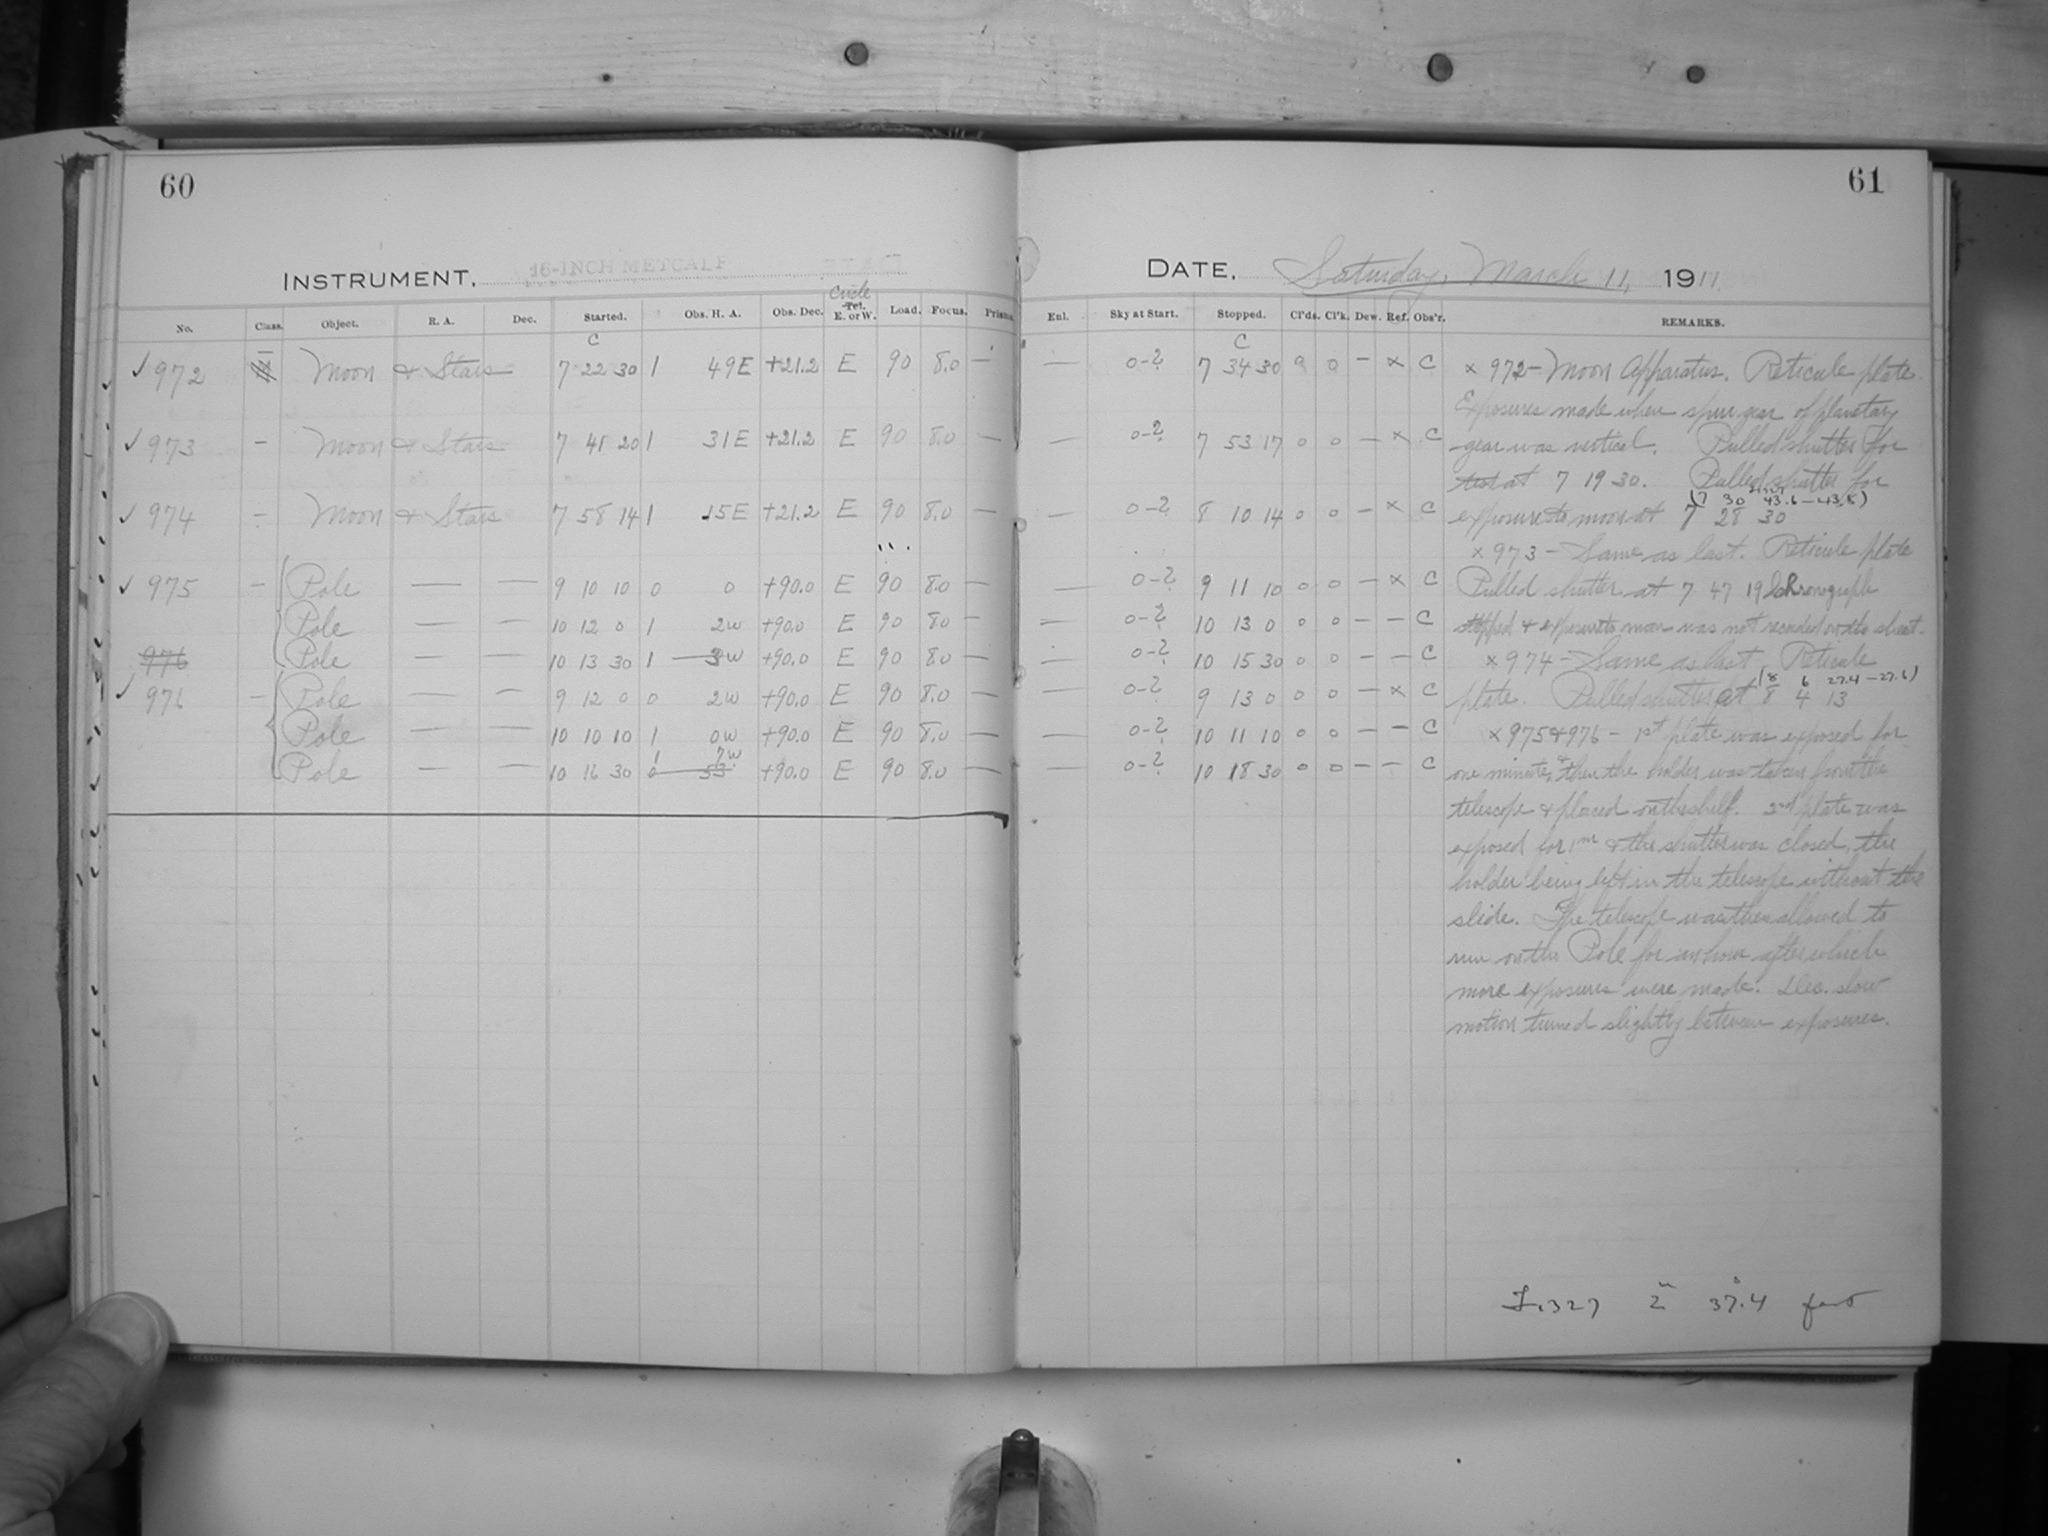 60
INSTRUMENT, 16-INCH METCALF
Circle
No. Class. Object. R. A. Dec. Started. Obs. H. A. Obs. Dec. Tel. E. or W. Load. Focus. Prism.
C
✓ 972 Moon & Stars 7 22 30 1 49E +21.2 E 90 8.0 —
✓ 973 — Moon & Stars 7 41 20 1 31E +21.2 E 90 8.0 —
✓ 974 — Moon & Stars 7 58 14 1 15E +21.2 E 90 8.0 —
✓ 975 — Pole — — 9 10 10 0 0 +90.0 E 90 8.0 —
Pole — — 10 12 0 1 2W +90.0 E 90 8.0 —
976 Pole — — 10 13 30 1 3W +90.0 E 90 8.0 —
✓ 976 — Pole — — 9 12 0 0 2W +90.0 E 90 8.0 —
Pole — — 10 10 10 1 0W +90.0 E 90 8.0 —
1 7W
Pole — — 10 16 30 0 53 +90.0 E 90 8.0 —
61
DATE, Saturday, March 11, 1911
Enl. Sky at Start. Stopped. Cl'ds. Cl'k. Dew. Ref. Obs'r. REMARKS.
C
— 0-2 7 34 30 0 0 — x C
— 0-2 7 53 17 0 0 — x C
— 0-2 8 10 14 0 0 — x C
— 0-2 9 11 10 0 0 — x C
— 0-2 10 13 0 0 0 — — C
— 0-2 10 15 30 0 0 — — C
— 0-2 9 13 0 0 0 — x C
— 0-2 10 11 10 0 0 — — C
— 0-2 10 18 30 0 0 — — C
x 972 — Moon Apparatus. Reticule plate.
Exposures made when spur gear of planetary
gear was vertical. Pulled shutter for
test at 7 19 30. Pulled shutter for
(7 30 43.6 — 43.8)
exposure to moon at 7 28 30
x 973 — Same as last. Reticule plate
Pulled shutter at 7 47 19 Chronograph
stopped & exposure to moon was not recorded on the sheet.
x 974 — Same as last Reticule
(8 6 27.4 — 27.6)
plate. Pulled shutter at 8 4 13
x 975 & 976 — 1st plate was exposed for
one minute, & then the holder was taken from the
telescope & placed on the shelf. 2nd plate was
exposed for 1m & the shutter was closed, the
holder being left in the telescope without the
slide. The telescope was then allowed to
run on the Pole for an hour after which
more exposures were made. Dec. slow
motion turned slightly between exposures.
F.327 2m 37.4s fast